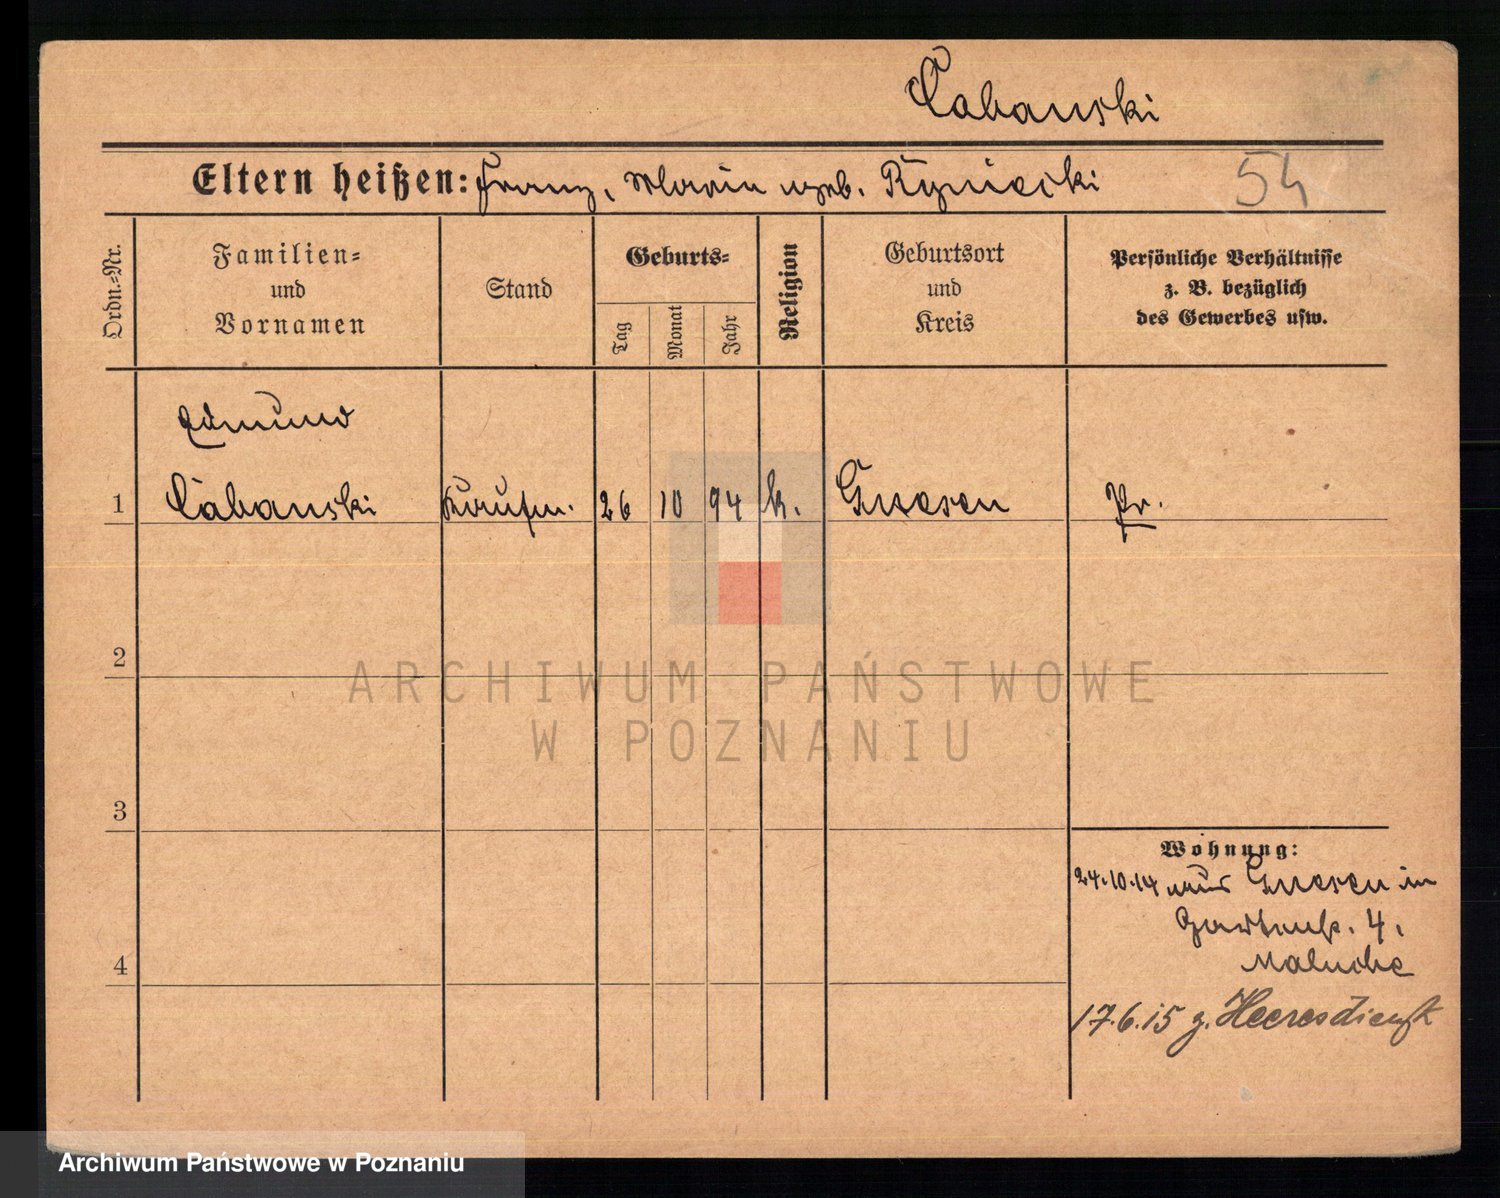 Cabanski
Eltern heißen: Franz, Maria geb. Rzniecki
54
Ordn.-Nr.
Familien-
und
Vornamen
Stand
Geburts-
Tag
Monat
Jahr
Religion
Geburtsort
und
Kreis
Persönliche Verhältnisse
z. B. bezüglich
des Gewerbes usw.
Edmund
1 Cabanski Kaufm. 26 10 94 k. Gnesen Pr.
2
3
4
Wohnung:
24.10.14 aus Gnesen in
Gartenstr. 4,
17.6.15 z. Heeresdienst
ARCHIWUM PAŃSTWOWE
W POZNANIU
Archiwum Państwowe w Poznaniu